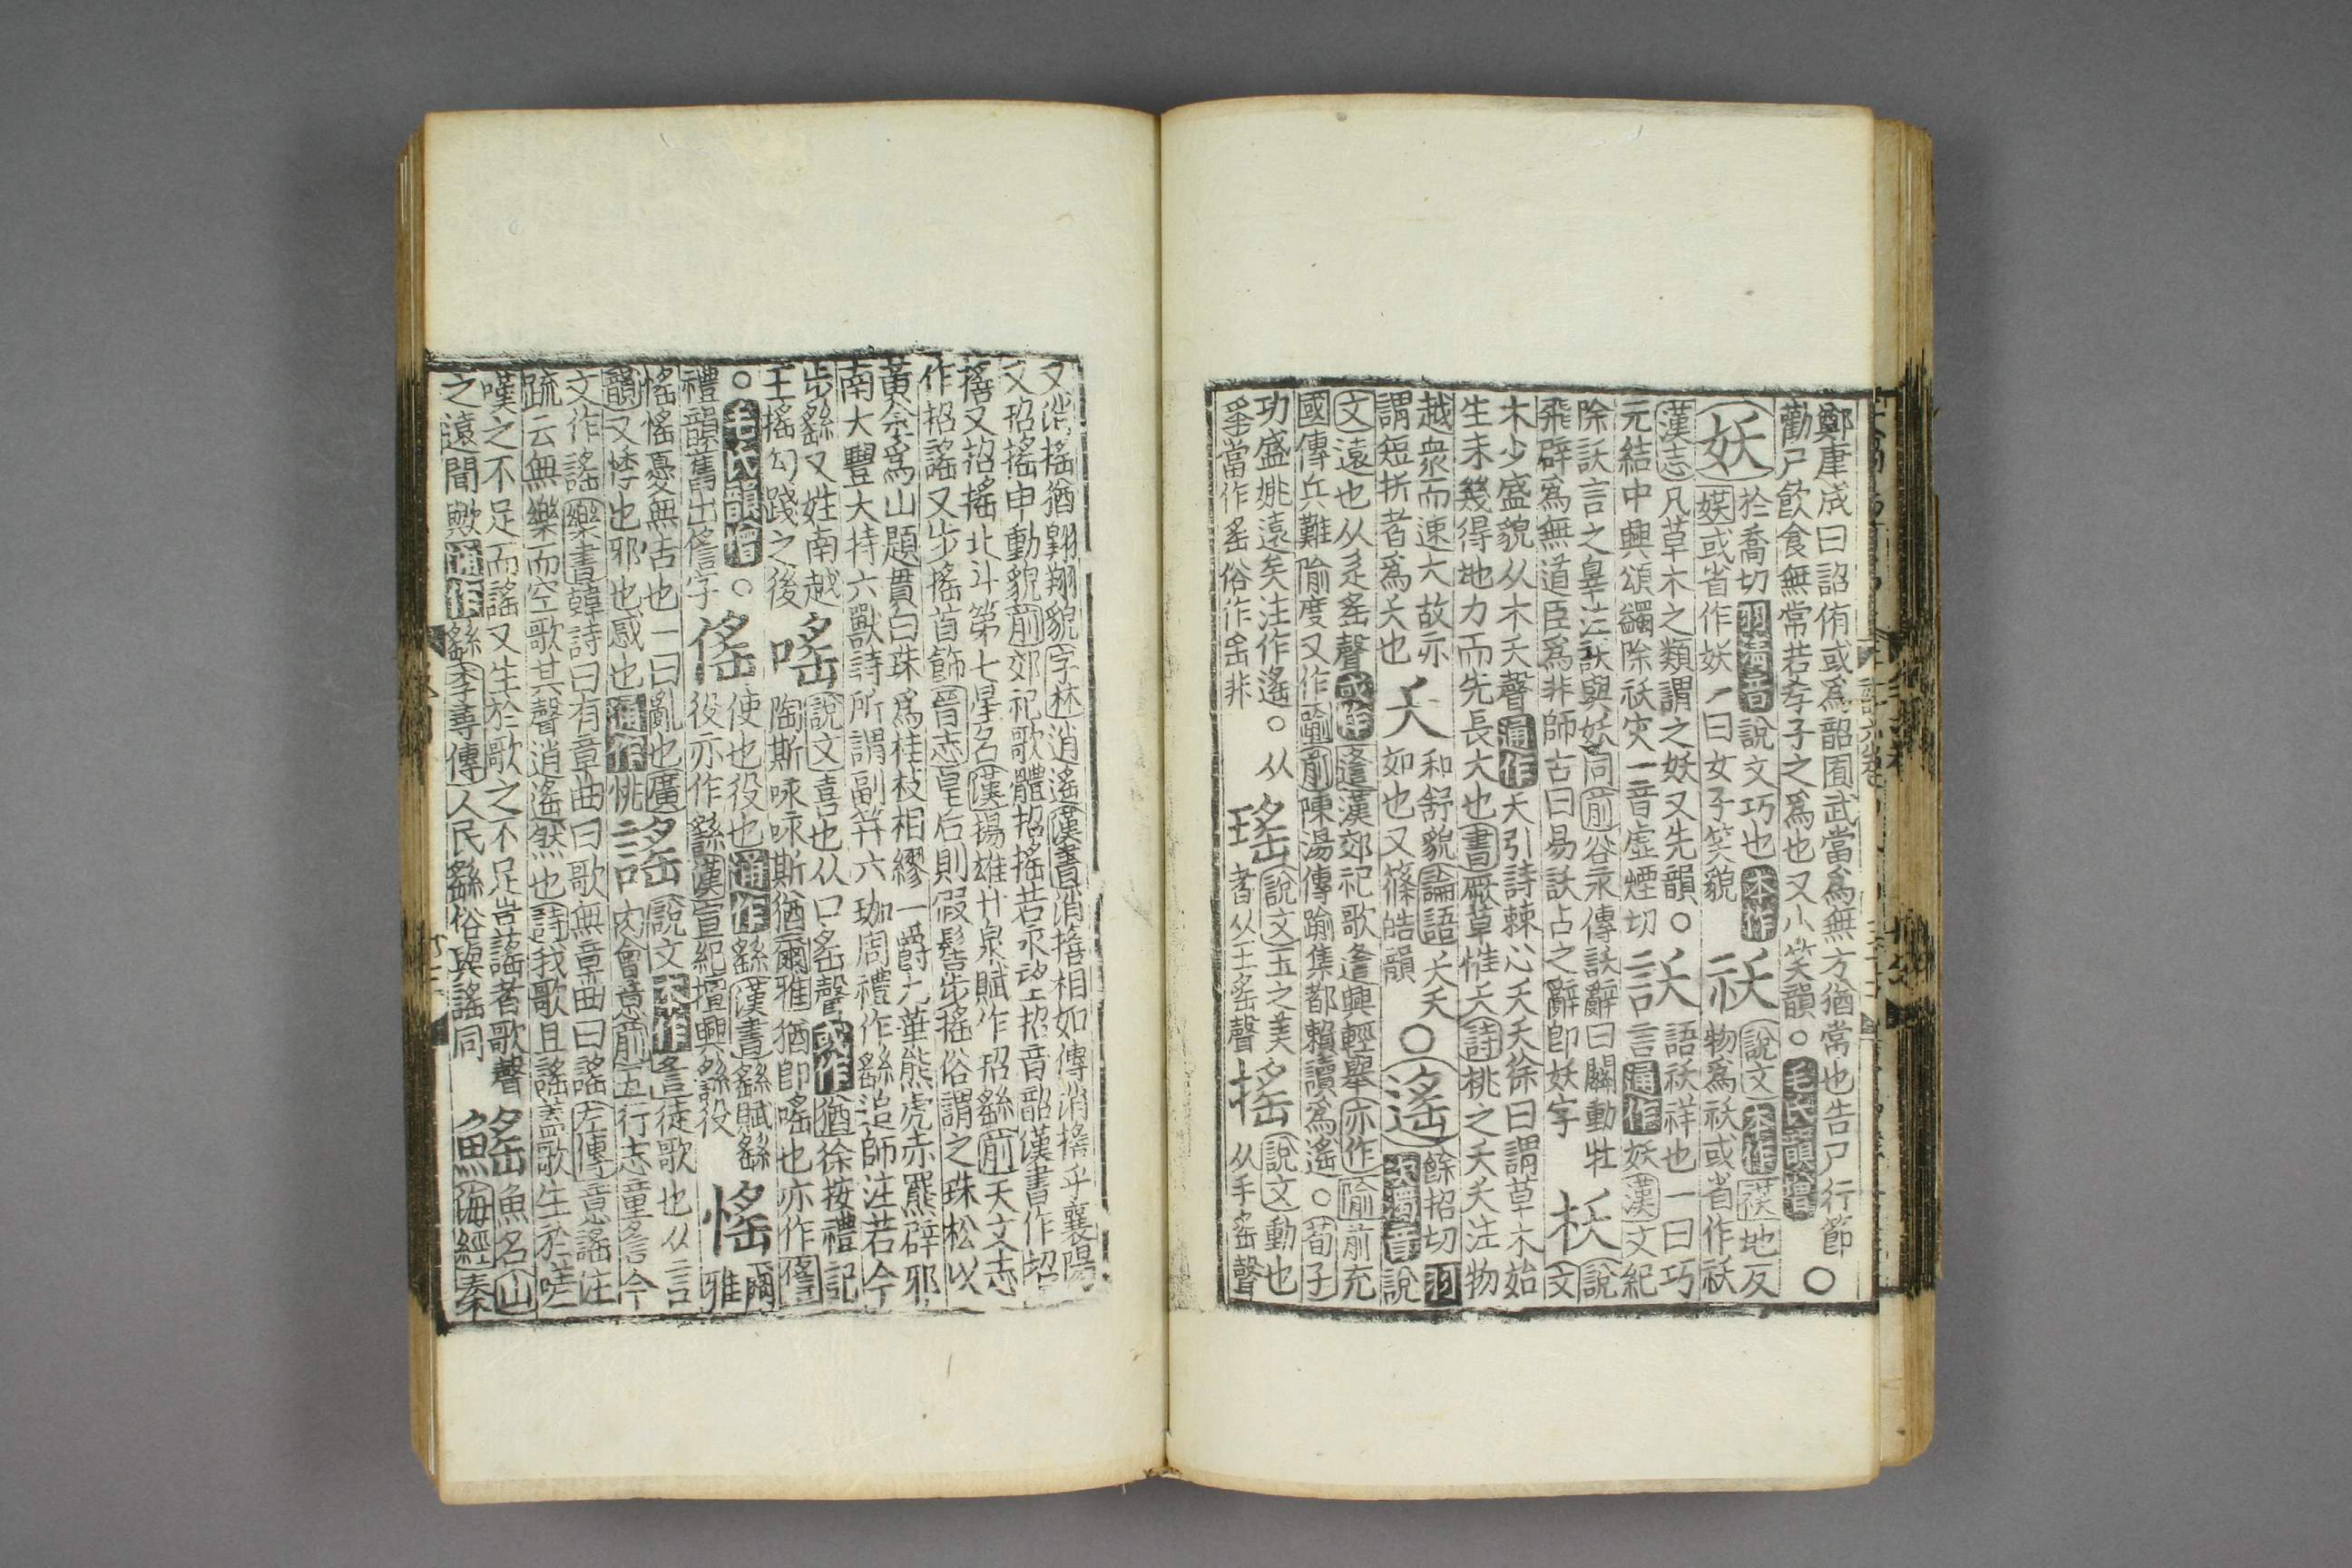 鄭康成曰詔侑或爲韶囿武當爲無方猶常也告尸行節〇
勸尸飮食無常若孝子之爲也又小笑韻〇毛氏韻增
妖於喬切羽淸音說文巧也本作
媄或省作妖一曰女子笑貌
祅說文本作䄏地反
物爲祅或省作祅
漢志凡草木之類謂之妖又先韻〇訞語祅祥也一曰巧
元結中興頌蠲除祅灾一音虛煙切言通作妖漢文紀
除訞言之辠注訞與妖同前谷永傳訞辭曰關動牡枖說
飛辟爲無道臣爲非師古曰易訞占之辭卽妖字文
木少盛貌从木夭聲通作夭引詩棘心夭夭徐曰謂草木始
生未幾得地力而先長大也書厥草惟夭詩桃之夭夭注物
越衆而速大故亦夭和舒貌論語夭夭〇遙餘招切次濁音羽
謂短折者爲夭也如也又篠皓韻說
文遠也从辵䍃聲或作逺漢郊祀歌逺興輕舉亦作隃前充
國傳兵難隃度又作踰前陳湯傳踰集都賴讀爲遙〇荀子
功盛姚遠矣注作遙〇从瑤說文玉之美搖說文動也
䍃當作䍃俗作䍃非者从王䍃聲从手䍃聲
又消搖猶翱翔貌字林消遙漢書消搖相如傳消搖乎襄陽
又招搖申動貌前郊祀歌體招搖若永望招音韶漢書作招
搖又招搖北斗第七星名漢揚雄甘泉賦作招繇前天文志
作招謠又步搖首飾晉志皇后則假髻步搖俗謂之珠松以
黃金爲山題貫白珠爲桂枝相繆一爵九華熊虎赤羆辟邪
南大豐大特六獸詩所謂副笄六珈周禮作繇追師注若今
步繇又姓南越
王搖勾踐之後
嗂說文喜也从口䍃聲或作猶徐按禮記
陶斯咏咏斯猶爾雅猶卽嗂也亦作傜
〇毛氏韻增〇傜使也役也通作繇漢書繇賦繇
禮韻舊出傜字役亦作繇漢宣紀擅興繇役
愮爾雅
愮愮憂無告也一曰亂也廣謠說文本作䚻徒歌也从言
韻又悸也邪也惑也通作恌肉會意前五行志童䚻今
文作謠樂書韓詩曰有章曲曰歌無章曲曰謠左傳意謠注
疏云無樂而空歌其聲消遙然也詩我歌且謠蓋歌生於嗟
嘆之不足而謠又生於歌之不足豈謠者歌聲鰩魚名山
之遠聞歟通作繇李尋傳人民繇俗與謠同海經秦